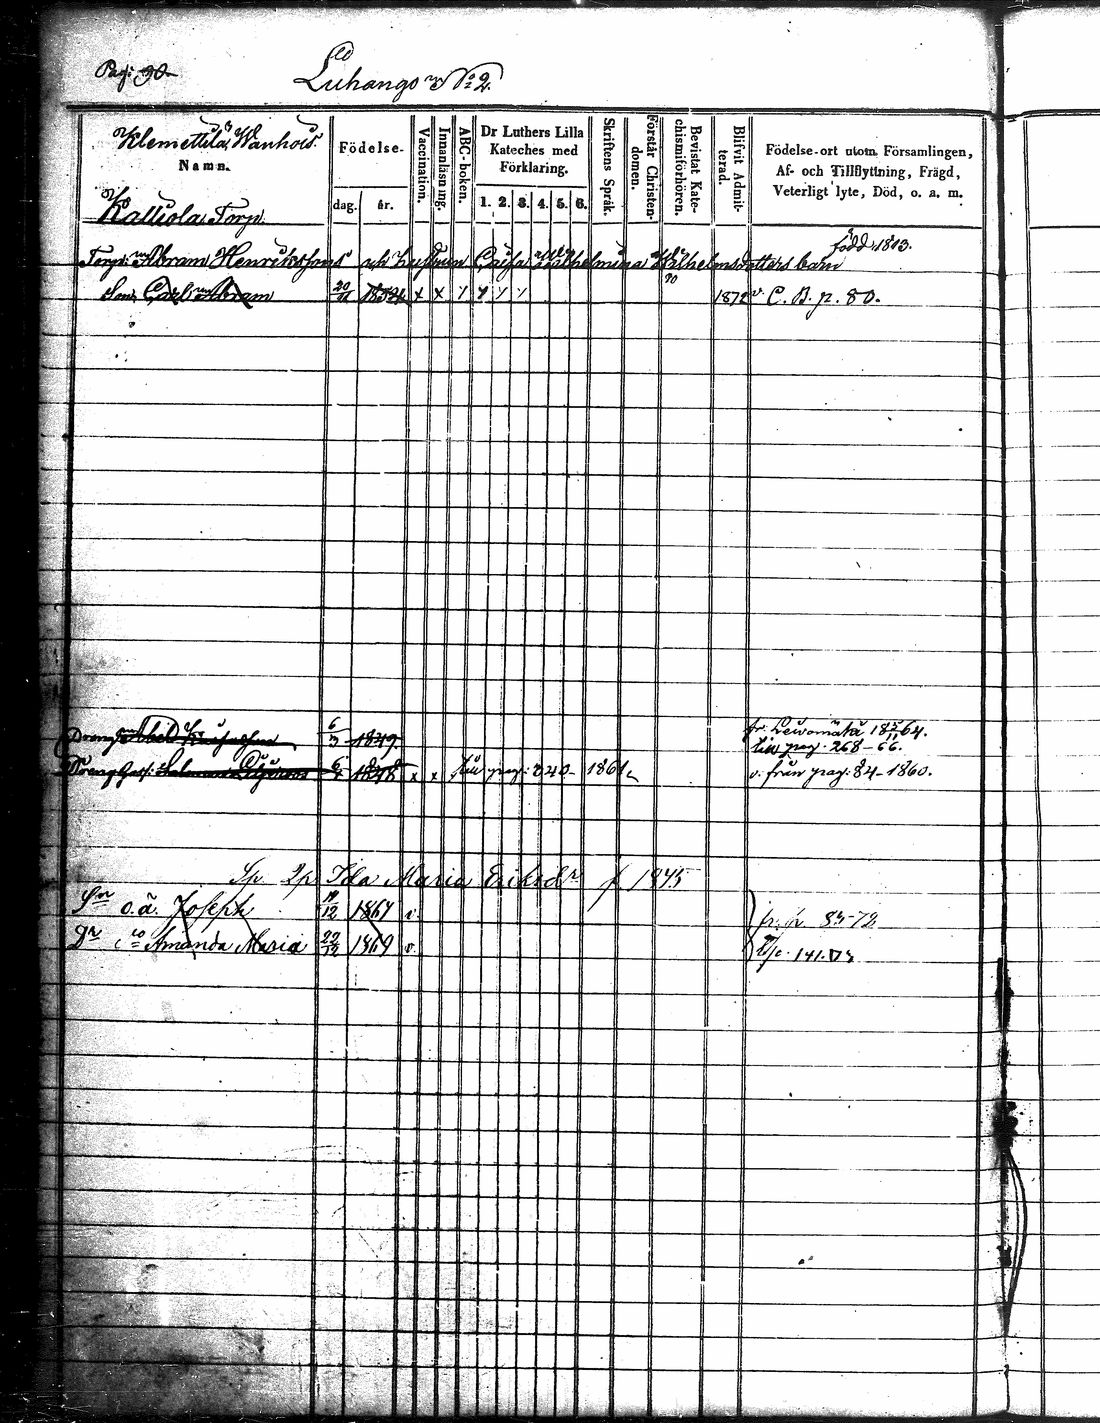 Pag: 90
Luhango No 2.
Klemettilä, Wanhois.
Namn.
Kalliola Torp.
Födelse-
dag. år.
Vaccination.
Innanläsning.
ABC-boken.
Dr Luthers Lilla
Kateches med
Förklaring.
1. 2. 3. 4. 5. 6.
Skriftens Språk.
Förstår Christendomen.
Bevistat Katechismiförhören.
Blifvit Admitterad.
Födelse-ort utom Församlingen,
Af- och Tillflyttning, Frägd,
Veterligt lyte, Död, o. a. m.
född 1813.
Torp: Abram Henriksson och hustrun Caisa Wilhelmina Wilhelmsdotters barn
Son, Carl Abram 20 1854 x x 1872 C. B. p. 80.
Dreng Abel 6/3 1849. fr. Leivonmäki 64.
pag. 268-66.
Dreng 6 1848 x x pag: 340- 1861 v. från pag: 84-1860.
Sp. 2p Ida Maria Eriksdr f 1845
Sn o.ä. Joseph 19/12 1867 v. fr. p 83-72
Dr Amanda Maria 22/12 1869 v. 141.73